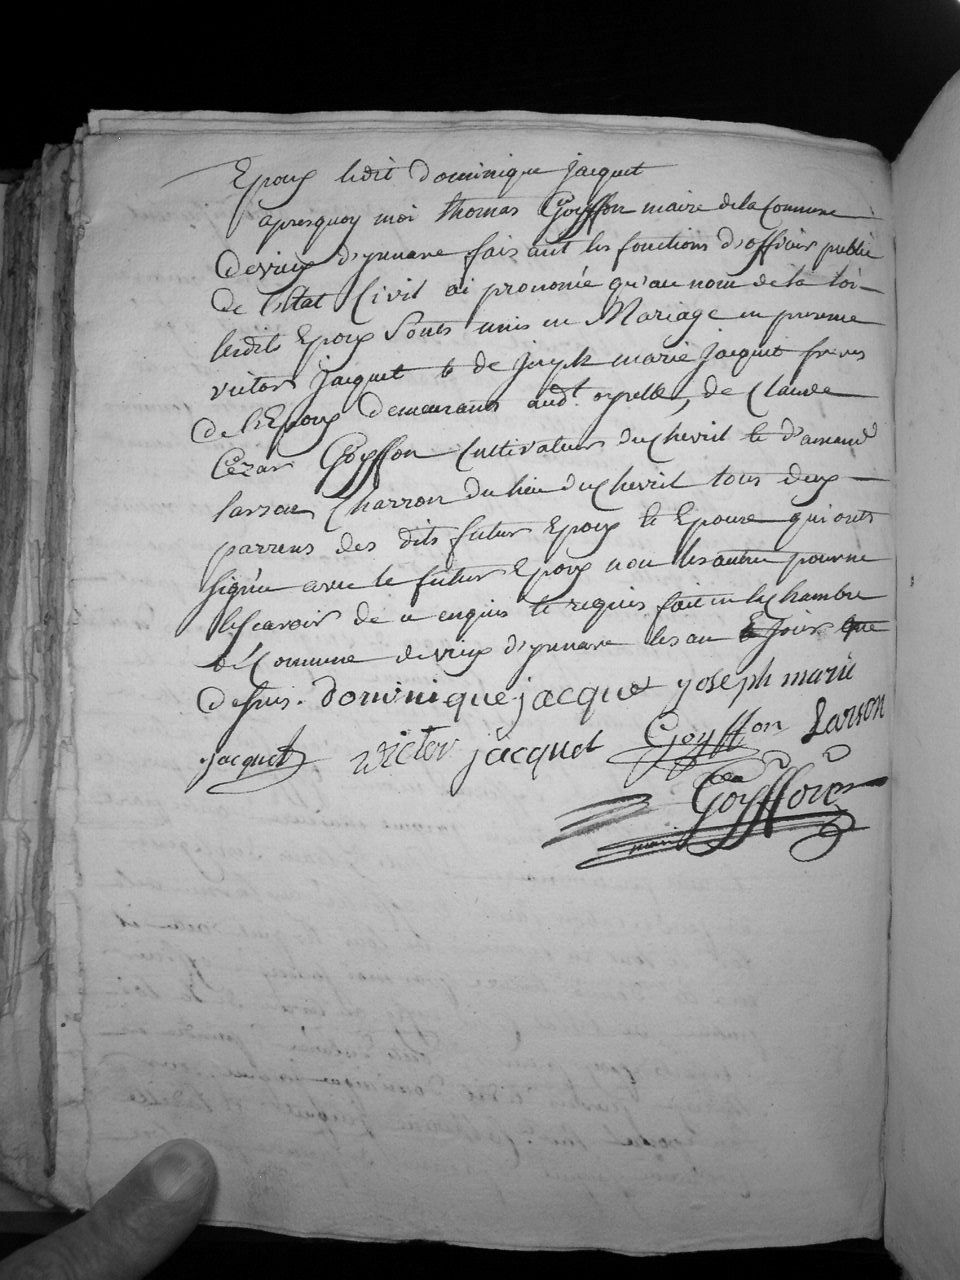 Epoux ledit dominique jacquet
apresquoy moi thomas Goyffon maire de la Commune
De vieux d'yzenave faisant les fonctions d'officier public
De l'Etat Civil ai prononcé qu'au nom de la loi
lesdits Epoux Sonts unis en Mariage en presence
victor jacquet & de joseph marie jacquet freres
De l'Epoux demeurants audt. , de Claude
Cézar Goyffon Cultivateur du Chevril & d'amand
larson Charron du lieu du Chevril tous deux
parrens des dits futur Epoux & Epouse qui onts
signée avec le futur Epoux non les autre pour ne
le scavoir de ce enquis & requis fait en la Chambre
de Commune de vieux d'yzenave les an & jour que
Dessus. dominique jacquet joseph marie
jacquet victor jacquet Goyffon Larson
Goyffon
maire